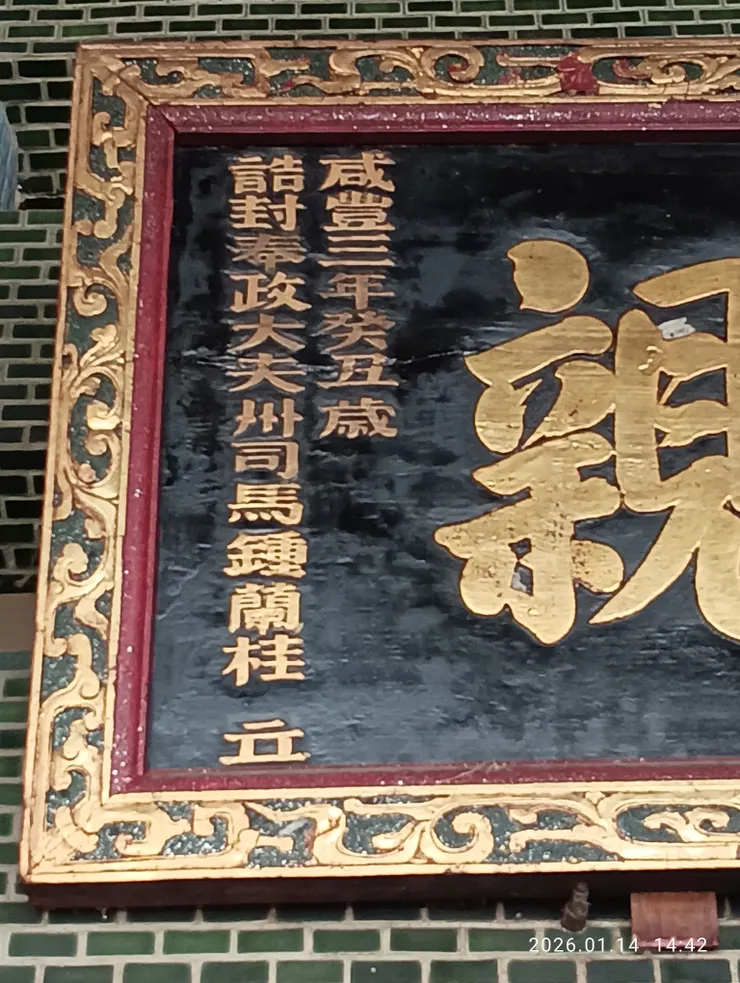 親
咸豐三年癸丑歲
誥封奉政大夫州司馬鍾蘭桂 立
2026.01.14 14:42